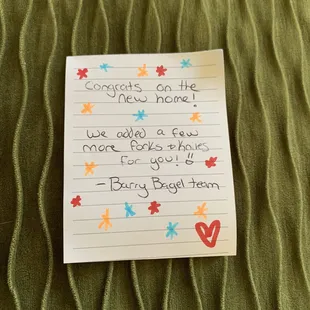 Congrats on the
new home!
We added a few
more forks & knives
for you!
- Barry Bagel team